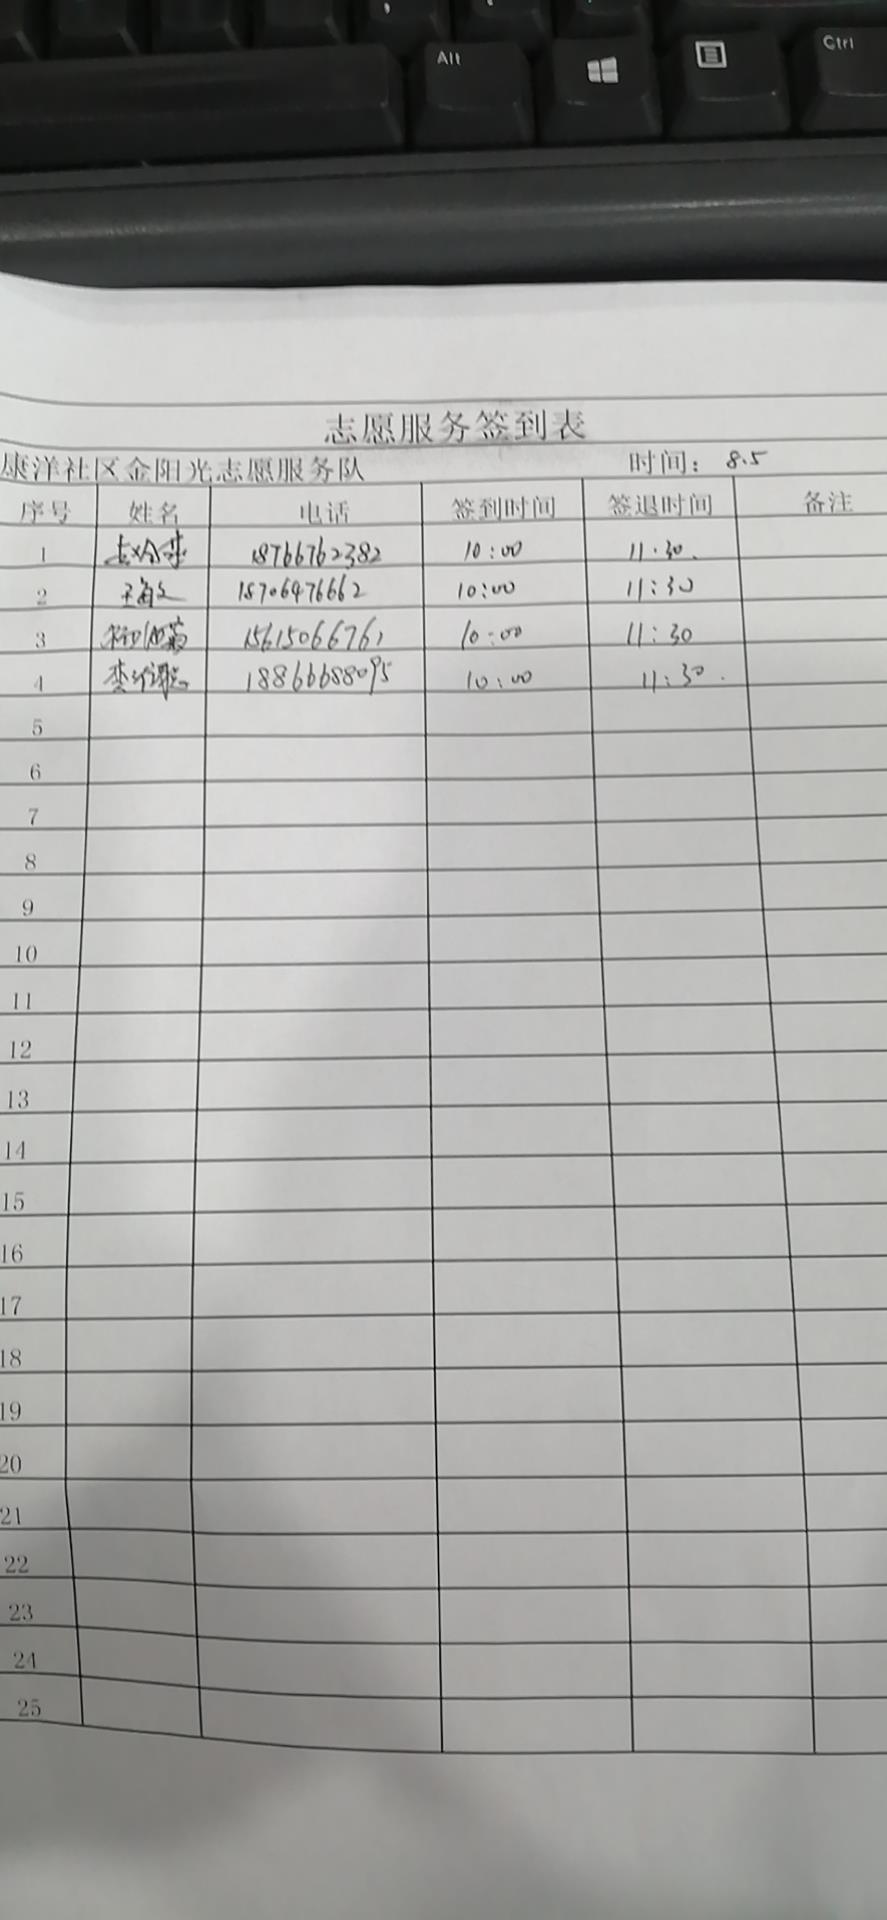 Alt
Ctrl
志愿服务签到表
康洋社区金阳光志愿服务队 时间: 8.5
序号 姓名 电话 签到时间 签退时间 备注
1 18766762382 10:00 11.30.
2 18706476662 10:00 11:30
3 15615066761 10:00 11:30
4 18866688095 10:00 11:30.
5
6
7
8
9
10
11
12
13
14
15
16
17
18
19
20
21
22
23
24
25